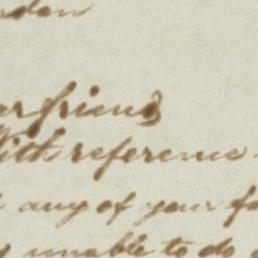 friend
With reference
any of your
unable to do